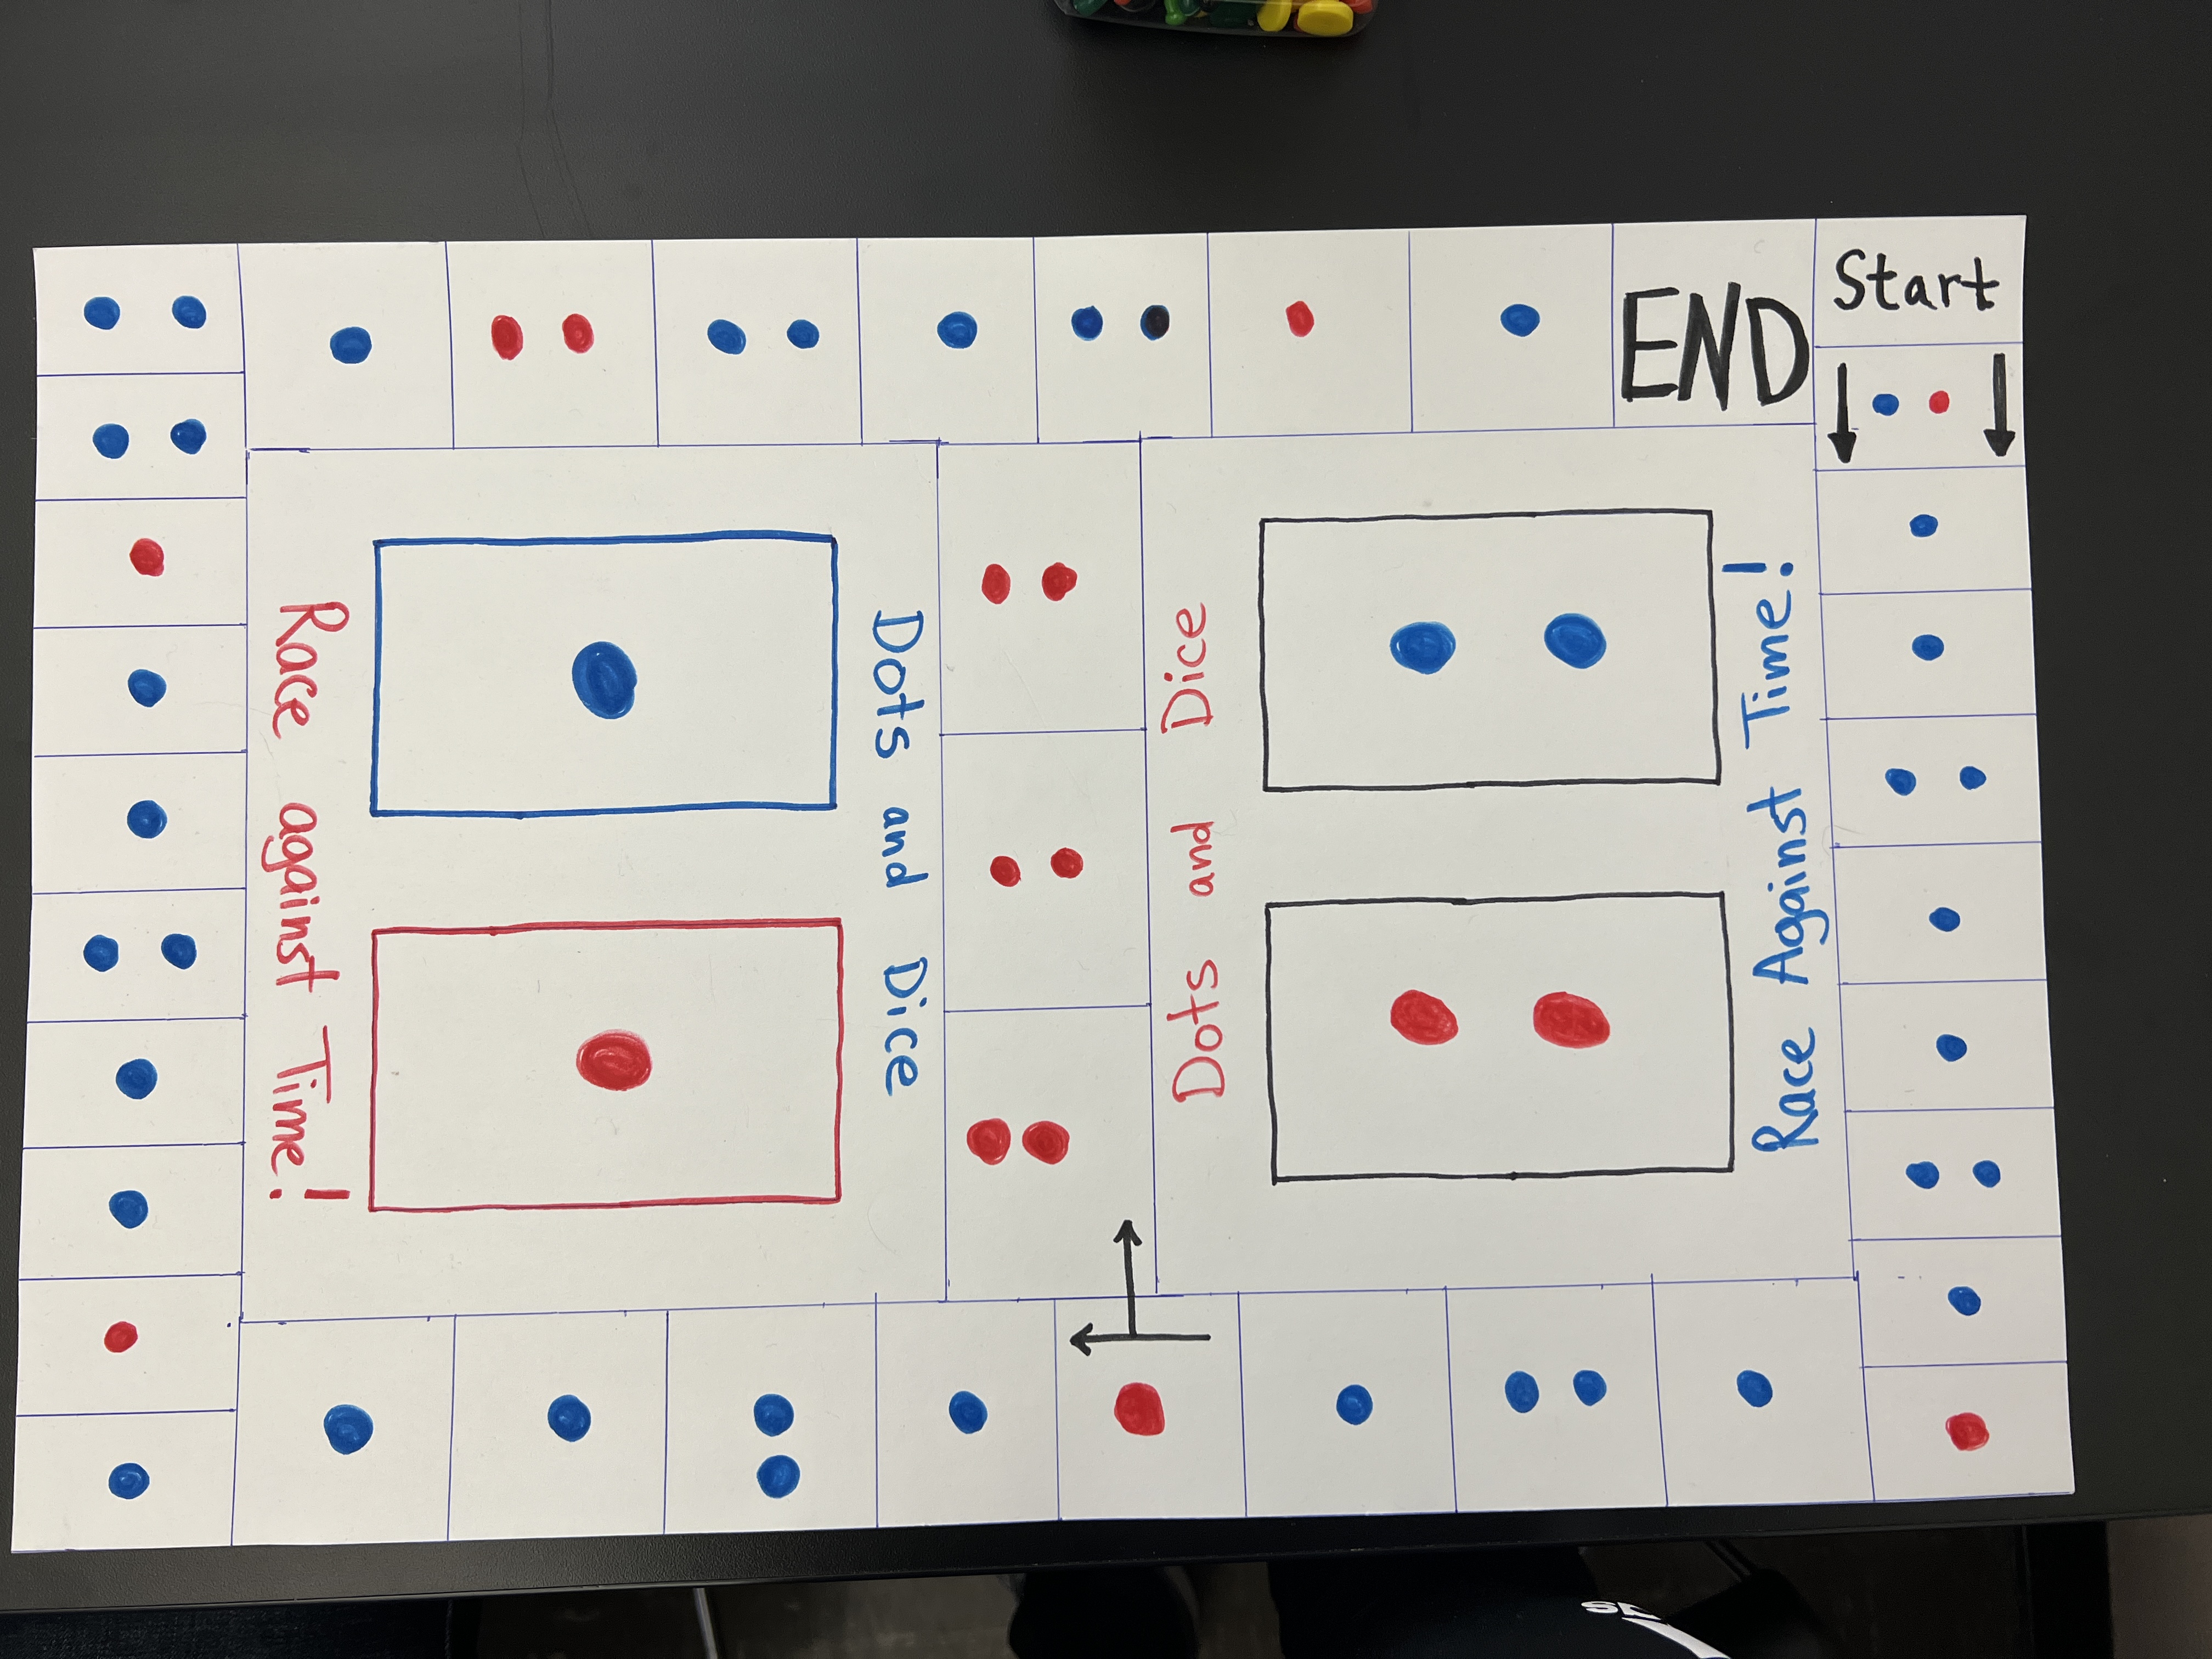 Race against Time!
Dots and Dice
Dots and Dice
Race Against Time!
END
Start